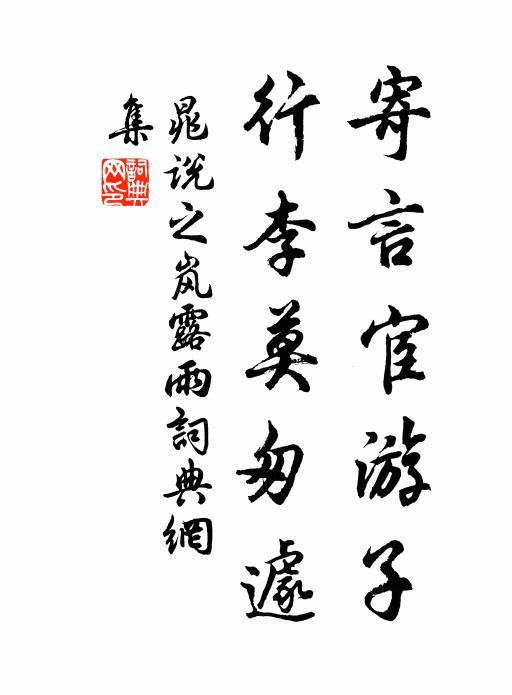 寄言宦游子
行李莫匆遽
晁說之岚露雨詞典網
集
詞典网印